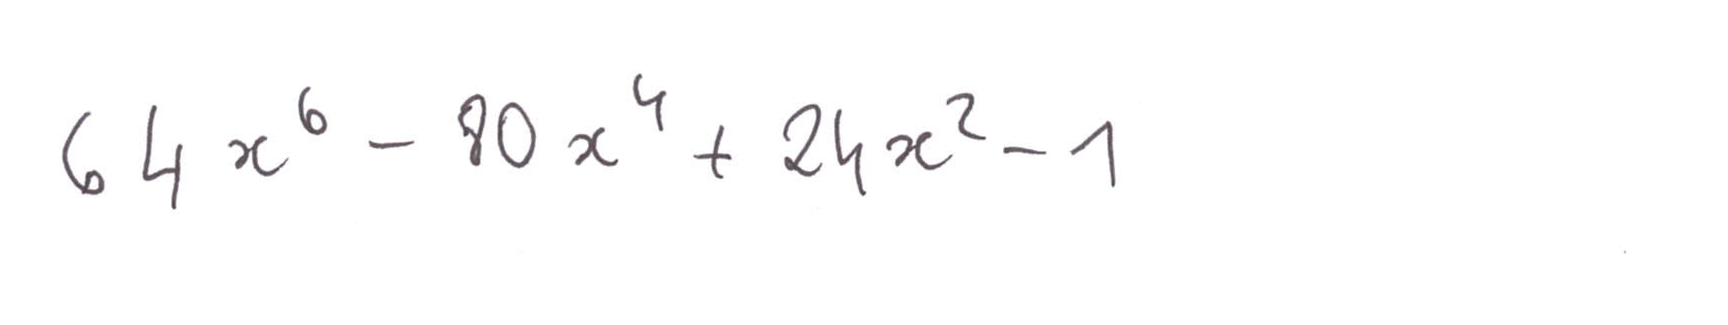 64x⁶ - 80x⁴ + 24x² - 1